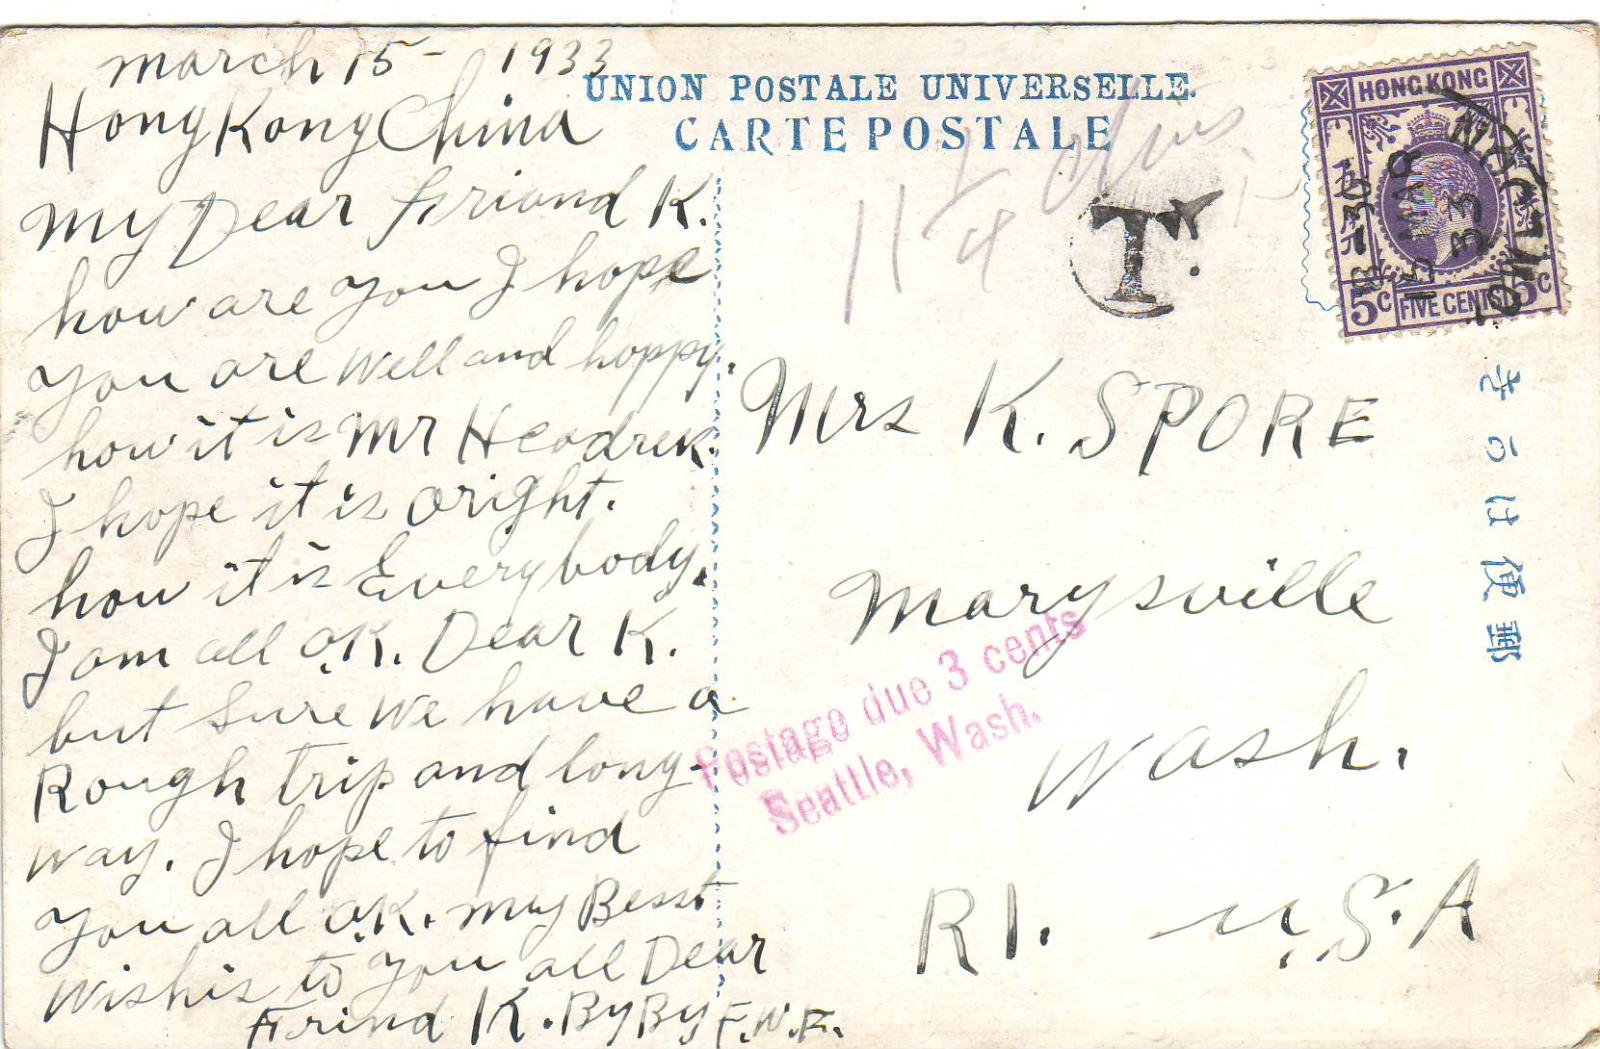 march 15 - 1933
Hong Kong China
my Dear friand K.
how are you I hope
you are well and hoppy.
how it is Mr Headrek.
I hope it is oright.
how it is Everybody.
I am all O.K. Dear K.
but sure we have a
Rough trip and long-
way. I hope to find
you all O.K. my Besst
wishis to you all Dear
Frind K. By By F.W.F.
UNION POSTALE UNIVERSELLE.
CARTE POSTALE
T.
HONG KONG
5c FIVE CENTS 5c
8-30
15 MAR
33
Mrs K. SPORE
Marysville
Wash.
R1. U.S.A
Postage due 3 cents
Seattle, Wash.
きがは便郵